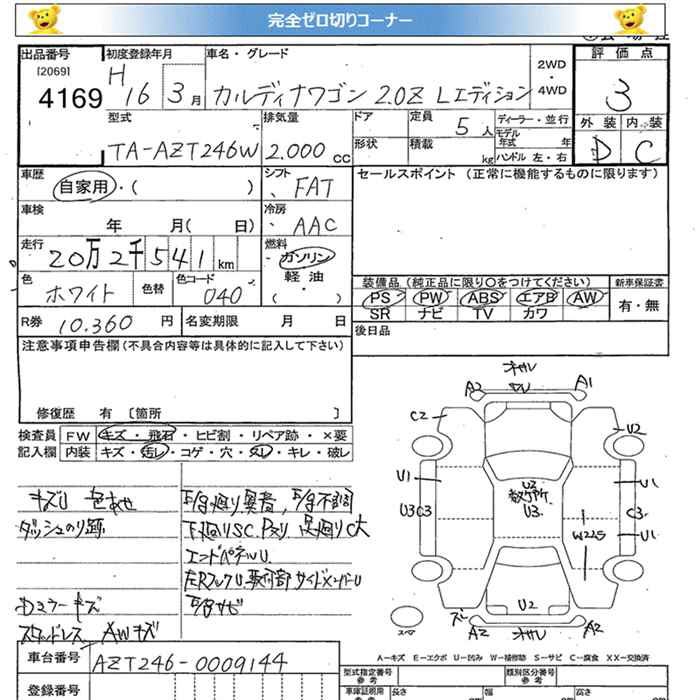 完全ゼロ切りコーナー
出品番号 初度登録年月 車名・グレード 評価点
[2069] H 2WD・4WD
4169 16 3月 カルディナワゴン 2.0Z Lエディション 3
型式 排気量 ドア 定員 5人 ディーラー・並行 外装 内装
モデル年式 年
TA-AZT246W 2,000cc 形状 積載 kg ハンドル 左・右 D C
車歴 シフト セールスポイント (正常に機能するものに限ります)
自家用・( ) FAT
車検 冷房
年 月( 日) AAC
走行 燃料
20万2千541km ガソリン
色 色替 色コード 軽油 装備品(純正品に限り○をつけてください) 新車保証書
ホワイト 040 ・( ) PS PW ABS エアB AW 有・無
SR ナビ TV カワ
R券 10,360円 名変期限 月 日 後日品
注意事項申告欄(不具合内容等は具体的に記入して下さい)
修復歴 有 〔箇所 〕
検査員 FW キズ・飛石・ヒビ割・リペア跡・×要
記入欄 内装 キズ・汚レ・コゲ・穴・スレ・キレ・破レ
キズU 色あせ
ダッシュのり跡 下廻りSC
エンドパネルU
Dミラーキズ 下廻サビ
スタッドレス AWキズ
A2 A1
C2 U2
U1 U2 U1
U3C3 U3 C3
U1
W2S
U2
スペア A2 A2
A－キズ E－エクボ U－凹み W－補修跡 S－サビ C－腐食 XX－交換済
車台番号 AZT246-0009144
型式指定番号 参考 類別区分番号 参考
登録番号 車庫証明用 参考 長さ 幅 高さ